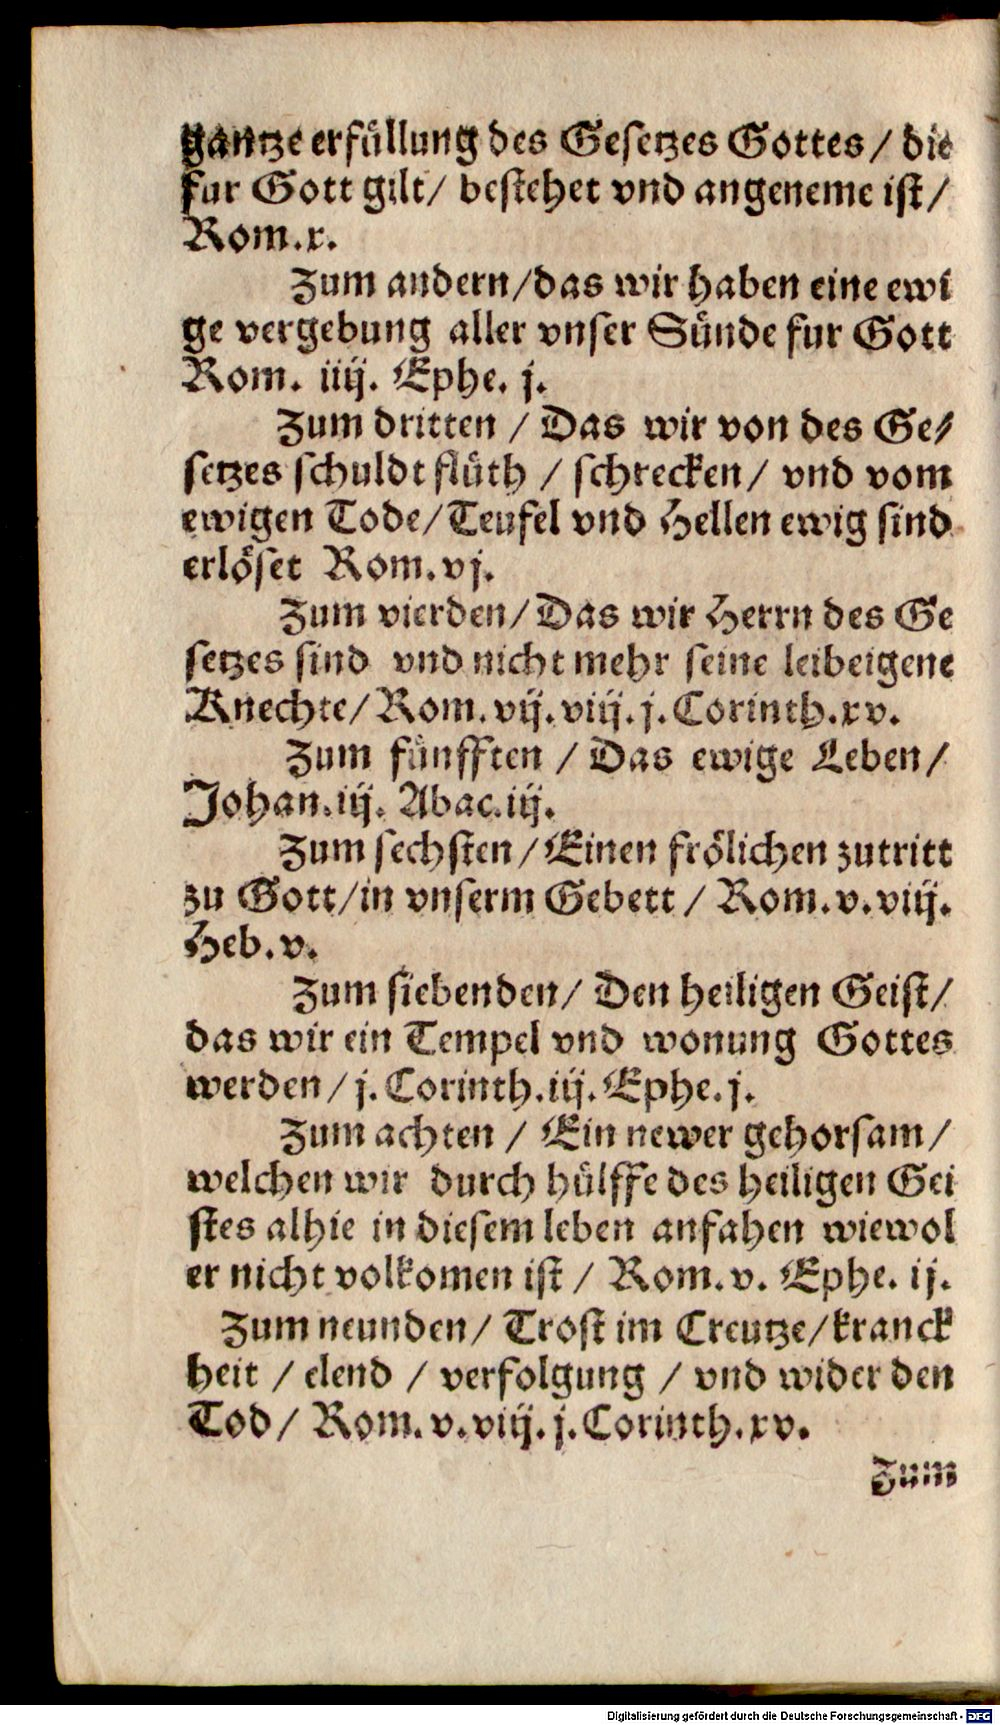 gantze erfüllung des Gesetzes Gottes / die
fur Gott gilt / bestehet vnd angeneme ist /
Rom. x.
Zum andern / das wir haben eine ewi
ge vergebung aller vnser Sünde fur Gott
Rom. iiij. Ephe. j.
Zum dritten / Das wir von des Ge⸗
setzes schuldt flüth / schrecken / vnd vom
ewigen Tode / Teufel vnd Hellen ewig sind
erlöset Rom. vj.
Zum vierden / Das wir Herrn des Ge
setzes sind vnd nicht mehr seine leibeigene
Knechte / Rom. vij. viij. j. Corinth. xv.
Zum fünfften / Das ewige Leben /
Johan. iij. Abac. iij.
Zum sechsten / Einen frölichen zutritt
zu Gott / in vnserm Gebett / Rom. v. viij.
Heb. v.
Zum siebenden / Den heiligen Geist /
das wir ein Tempel vnd wonung Gottes
werden / j. Corinth. iij. Ephe. j.
Zum achten / Ein newer gehorsam /
welchen wir durch hülffe des heiligen Gei
stes alhie in diesem leben anfahen wiewol
er nicht volkomen ist / Rom. v. Ephe. ij.
Zum neunden / Trost im Creutze / kranck
heit / elend / verfolgung / vnd wider den
Tod / Rom. v. viij. j. Corinth. xv.
Zum
Digitalisierung gefördert durch die Deutsche Forschungsgemeinschaft - DFG